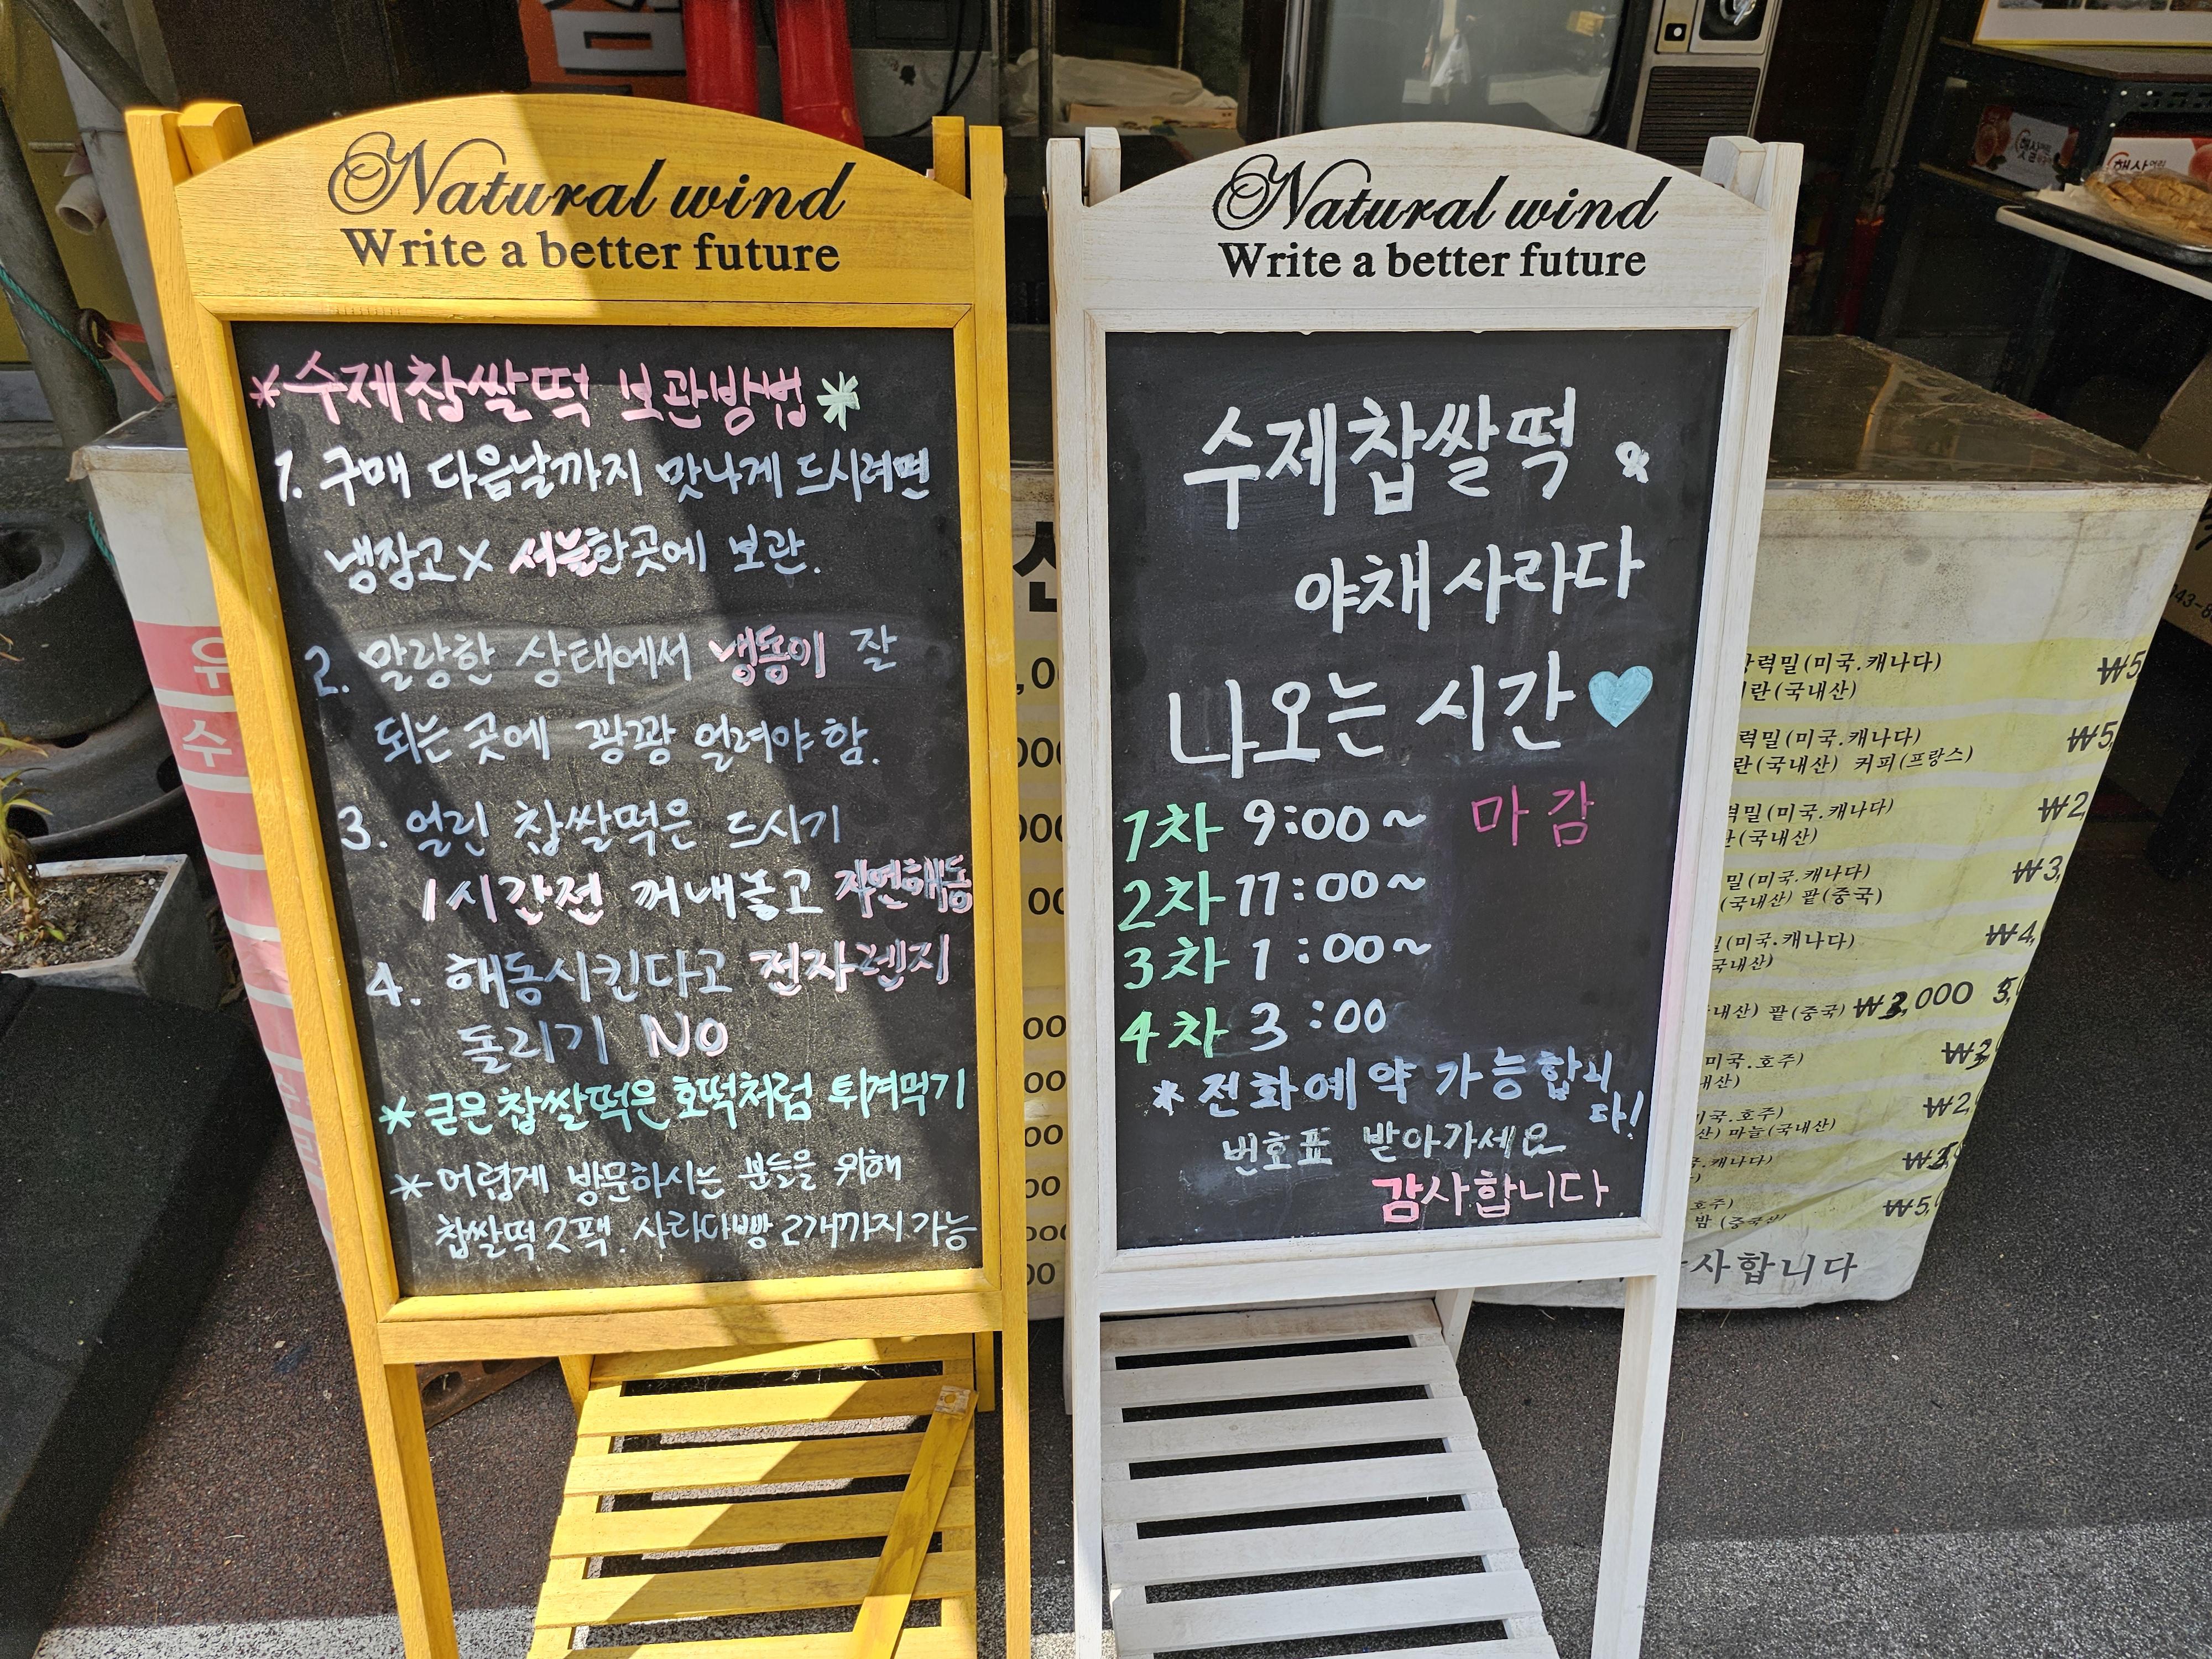 Natural wind
Write a better future
*수제찹쌀떡 보관방법*
1. 구매 다음날까지 맛나게 드시려면
냉장고X 서늘한곳에 보관.
2. 말랑한 상태에서 냉동이 잘
되는 곳에 꽝꽝 얼려야함.
3. 얼린 찹쌀떡은 드시기
1시간전 꺼내놓고 자연해동
4. 해동시킨다고 전자렌지
돌리기 NO
*굳은찹쌀떡은 호떡처럼 튀겨먹기
*어렵게 방문하시는 분들을 위해
찹쌀떡2팩. 사라다빵 2개까지 가능
Natural wind
Write a better future
수제찹쌀떡 &
야채사라다
나오는 시간
1차 9:00~ 마감
2차 11:00~
3차 1:00~
4차 3:00
*전화예약 가능합니
다!
번호표 받아가세요
감사합니다
력밀(미국.캐나다) ₩5
란(국내산)
력밀(미국.캐나다) ₩5,
란(국내산) 커피(프랑스)
력밀(미국.캐나다) ₩2
(국내산)
밀(미국.캐나다) ₩3,
(국내산) 팥(중국)
(미국.캐나다) ₩4,
국내산)
내산) 팥(중국) ₩3,000
미국.호주) ₩3
내산)
미국.호주) ₩2,
산) 마늘(국내산)
.캐나다)
호주) ₩5,
밤(중국산)
사합니다
우
수
햇살